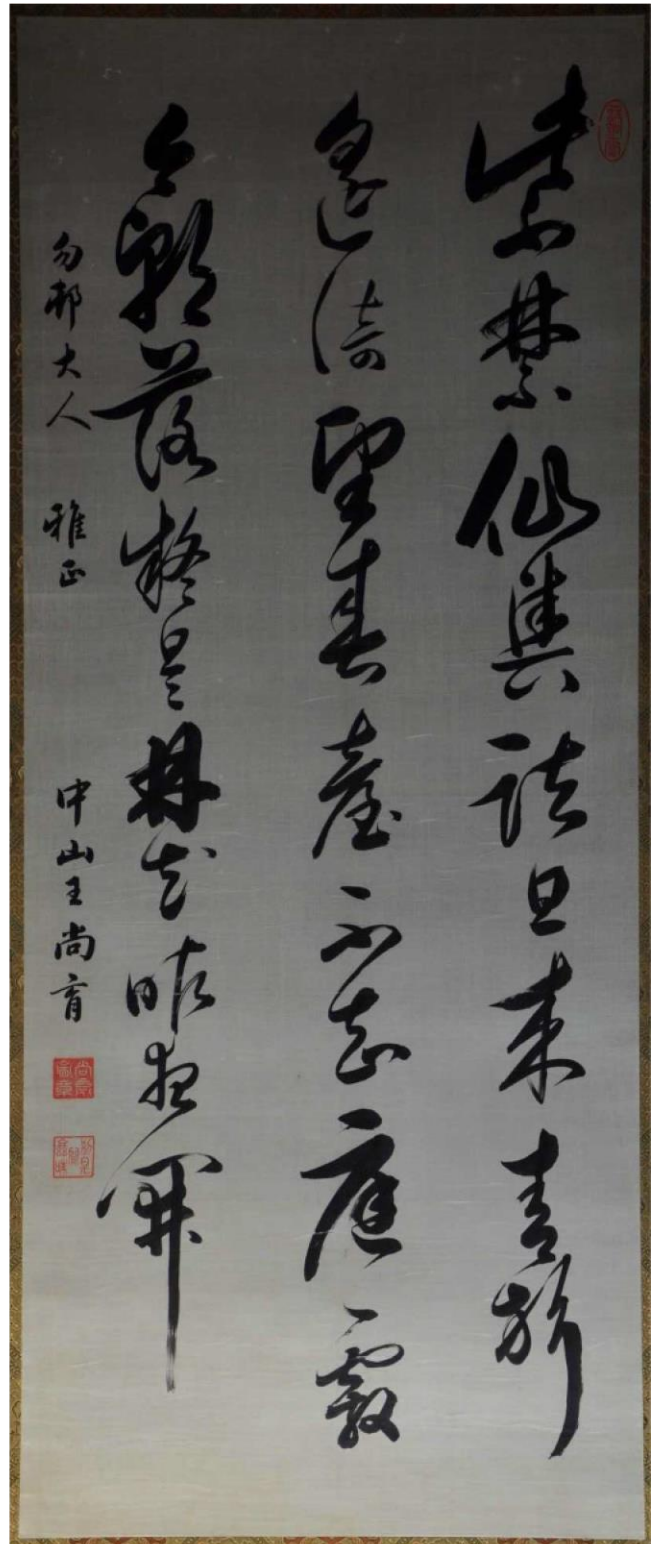 紫禁仙輿詰旦来青旂
遙倚望春臺不知庭霰
今朝落疑是林花昨夜開
勿邨大人 雅正 中山王尚育